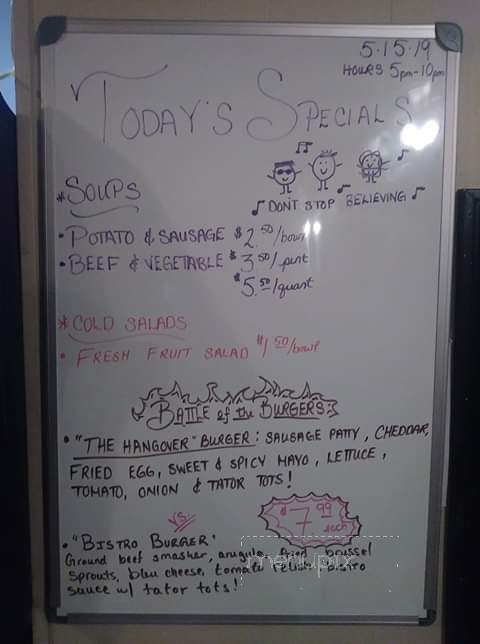 5.15.19
HOURS 5pm-10pm
TODAY'S SPECIALS
*SOUPS
DON'T STOP BELIEVING
• POTATO & SAUSAGE $2.50/bowl
• BEEF & VEGETABLE $3.50/pint
$5.50/quart
*COLD SALADS
• FRESH FRUIT SALAD $1.50/bowl
BATTLE of the BURGERS:
• "THE HANGOVER" BURGER: SAUSAGE PATTY, CHEDDAR,
FRIED EGG, SWEET & SPICY MAYO, LETTUCE,
TOMATO, ONION & TATOR TOTS!
VS.
$7.99 each
• "BISTRO BURGER"
Ground beef smasher, arugula, fried brussel
sprouts, bleu cheese, tomato relish, bistro
sauce w/ tator tots!
menupix